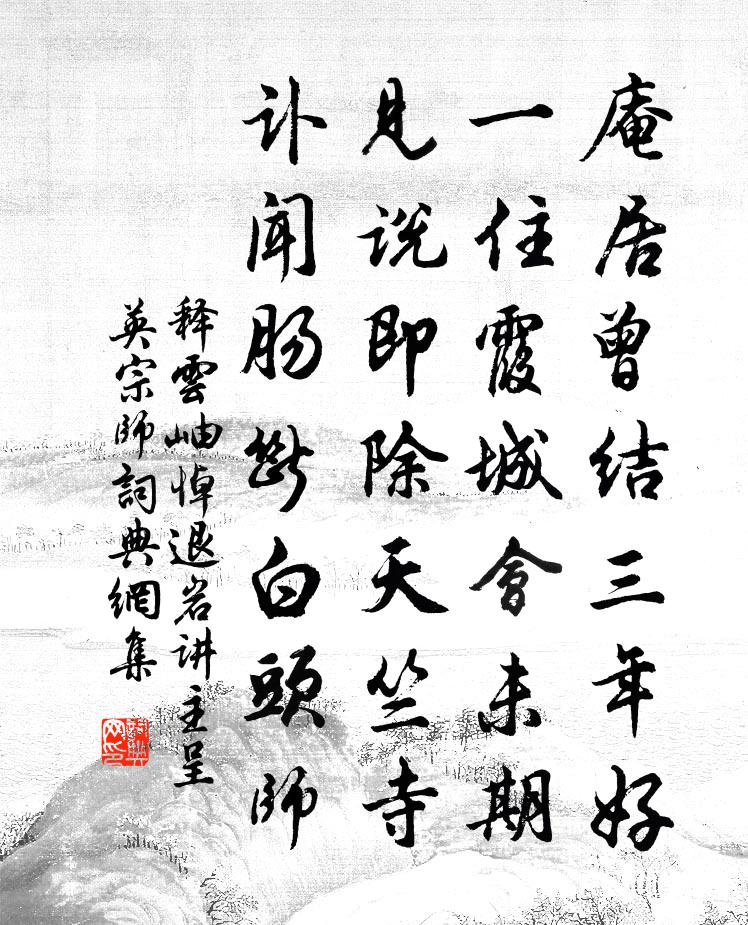 庵居曾结三年好
一住霞城會未期
見说即除天竺寺
讣闻肠斷白頭師
释雲岫悼退岩讲主呈
英宗师詞典網集